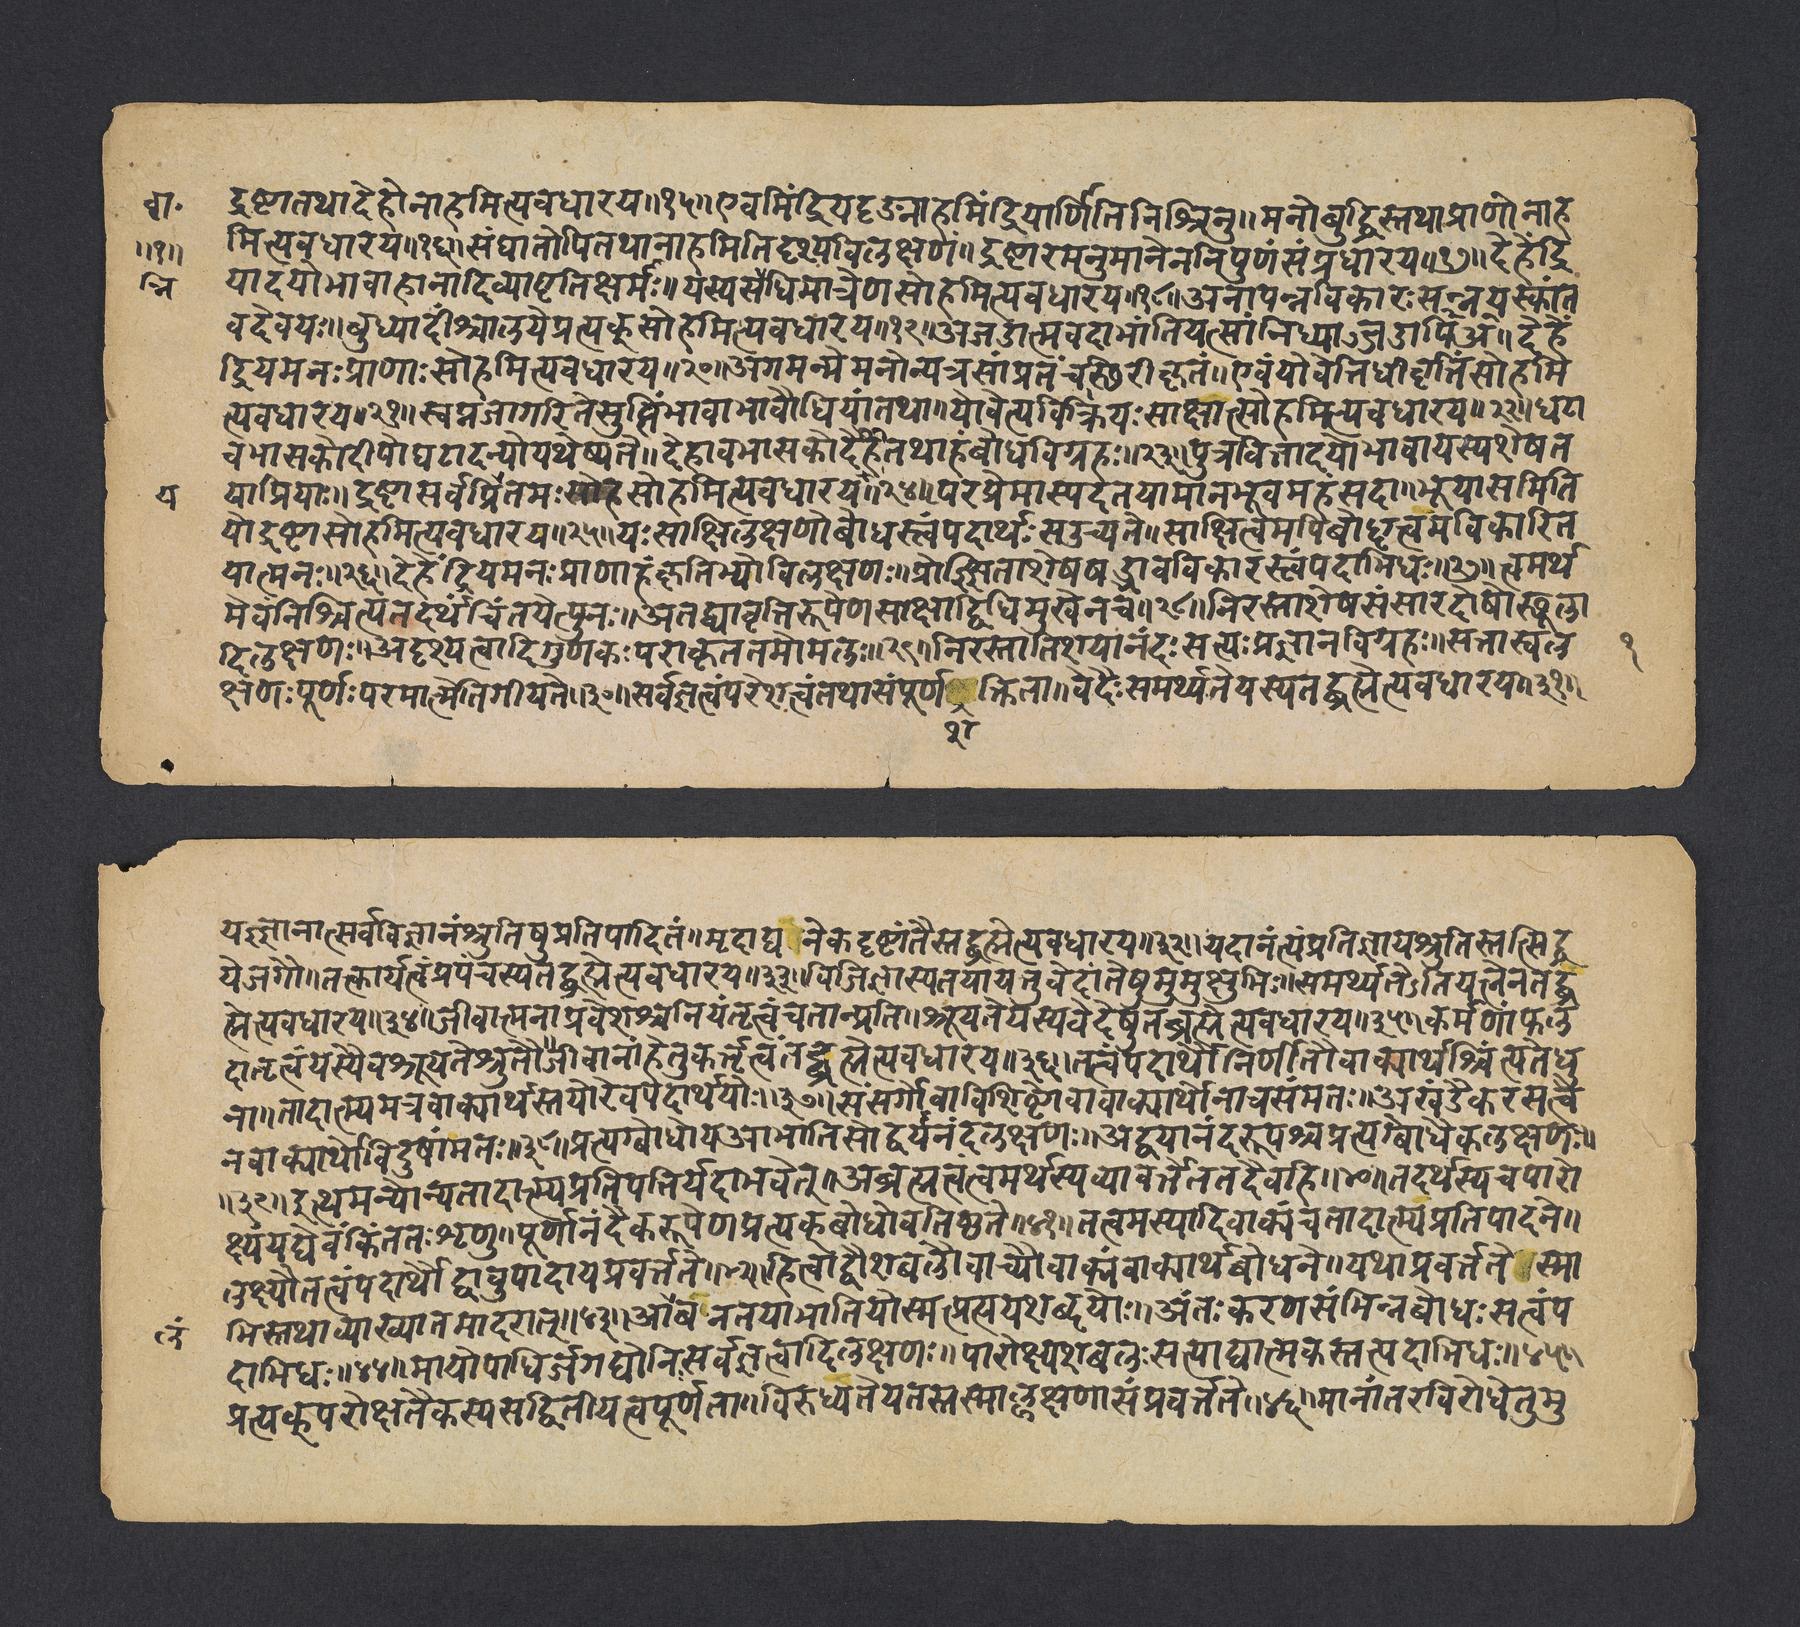 वा॰
॥१॥
द्रष्टातथादेहोनाहमित्यवधारय॥१५॥एवमिंद्रियदृङ्नाहमिंद्रियाणीतिनिश्चिनु॥मनोबुद्धिस्तथाप्राणोनाह
मित्यवधारय॥१६॥संघातोपितथानाहमितिदृश्यविलक्षणं॥द्रष्टारमनुमानेननिपुणंसंप्रधारय॥१७॥देहेंद्रि
न्नि
यादयोभावाहानादिव्यापृतिक्षमाः॥यस्यसंधिमात्रेणसोहमित्यवधारय॥१८॥अनापन्नविकारःसन्नयस्कांत
वदेवयः॥बुध्यादींश्चालयेत्प्रत्यक्सोहमित्यवधारय॥१९॥अजडात्मवदाभांतियत्सांनिध्याज्जडाअपि॥देहें
द्रियमनःप्राणाःसोहमित्यवधारय॥२०॥अगमन्मेमनोन्यत्रसांप्रतंचस्थिरीकृतं॥एवंयोवेत्तिधीवृत्तिंसोहमि
त्यवधारय॥२१॥स्वप्नजागरितेसुप्तिंभावाभावौधियांतथा॥योवेत्यविक्रियःसाक्षात्सोहमित्यवधारय॥२२॥घटा
वभासकोदीपोघटादन्योयथेष्यते॥देहावभासकोदेहीतथाहंबोधविग्रहः॥२३॥पुत्रवित्तादयोभावायस्यशेषत
य
याप्रियाः॥द्रष्टासर्वप्रितमःसोहमित्यवधारय॥२४॥परप्रेमास्पदतयामानभूवमहंसदा॥भूयासमिति
योद्रष्टासोहमित्यवधारय॥२५॥यःसाक्षिलक्षणोबोधस्त्वंपदार्थःसउच्यते॥साक्षित्वमपिबोद्धृत्वमविकारित
यात्मनः॥२६॥देहेंद्रियमनःप्राणाहंकृतिभ्योविलक्षणः॥प्रोज्झिताशेषषड्भावविकारस्त्वंपदाभिधः॥२७॥त्वमर्थ
मेवंनिश्चित्यतदर्थंचिंतयेत्पुनः॥अतद्व्यावृत्तिरूपेणसाक्षाद्विधिमुखेनच॥२८॥निरस्ताशेषसंसारदोषोस्थूला
दिलक्षणः॥अदृश्यत्वादिगुणकःपराकृततमोमलः॥२९॥निरस्तातिशयानंदःसत्यःप्रज्ञानविग्रहः॥सत्तास्वल
१
क्षणःपूर्णःपरमात्मेतिगीयते॥३०॥सर्वज्ञत्वंपरेशत्वंतथासंपूर्णक्तिता॥वेदैःसमर्थ्यतेयस्यतद्ब्रह्मेत्यवधारय॥३१॥
श
यज्ज्ञानात्सर्वविज्ञानंश्रुतिषुप्रतिपादितं॥मृदाद्यनेकदृष्टांतैस्तद्ब्रह्मेत्यवधारय॥३२॥यदानंत्यंप्रतिज्ञायश्रुतिस्तत्सिद्ध
येजगौ॥तत्कार्यत्वंप्रपंचस्यतद्ब्रह्मेत्यवधारय॥३३॥विजिज्ञास्यतयायत्तुवेदांतेषुमुमुक्षुभिः॥समर्थ्यतेऽतियत्नेनतद्ब्र
ह्मेत्यवधारय॥३४॥जीवात्मनाप्रवेशश्चनियंतृत्वंचतान्प्रति॥श्रूयतेयस्यवेदेषुतब्रह्मेत्यवधारय॥३५॥कर्मणांफल
दातृत्वंयस्यैवश्रूयतेश्रुतौ॥जीवानांहेतुकर्त्तृत्वंतद्ब्रह्मेत्यवधारय॥३६॥तत्त्वंपदार्थौनिर्णीतौवाक्यार्थश्चिंत्यतेधु
ना॥तादात्म्यमत्रवाक्यार्थस्तयोरेवपदार्थयोः॥३७॥संसर्गोवाविशिष्टोवावाक्यार्थोनात्रसंमतः॥अखंडैकरसत्वे
नवाक्यार्थोविदुषांमतः॥३८॥प्रत्यग्बोधोयआभातिसोद्वयनंदलक्षणः॥अद्वयानंदरूपश्चप्रत्यग्बोधैकलक्षणः॥
॥३९॥इत्थमन्योन्यतादात्म्यप्रतिपत्तिर्यदाभवेत्॥अब्रह्मत्वंत्वमर्थस्यव्यावर्त्तेततदैवहि॥४०॥तदर्थस्यचपारो
क्ष्यंयद्येवंकिंततःशृणु॥पूर्णानंदैकरूपेणप्रत्यक्बोधोवतिष्ठते॥४१॥तत्त्वमस्यादिवाक्यंचतादात्म्यप्रतिपादने॥
लक्ष्यौतत्त्वंपदार्थौद्वावुपादायप्रवर्त्तते॥४२॥हित्वाद्वौशबलौवाच्यौवाक्यंवाक्यार्थबोधने॥यथाप्रवर्त्ततेस्मा
लं
भिस्तथाव्याख्यातमादरात्॥४३॥आबनतयाभातियोस्मत्प्रत्ययशब्दयोः॥अंतःकरणसंभिन्नबोधःसत्वंप
दाभिधः॥४४॥मायोपाधिर्जगद्योनिःसर्वज्ञत्वादिलक्षणः॥पारोक्ष्यशबलःसत्याद्यात्मकस्तत्पदाभिधः॥४५॥
प्रत्यक्परोक्षतैकस्यसद्वितीयत्वपूर्णता॥विरुध्यतेयतस्तस्माल्लक्षणासंप्रवर्त्तते॥४६॥मानांतरविरोधेतुमु